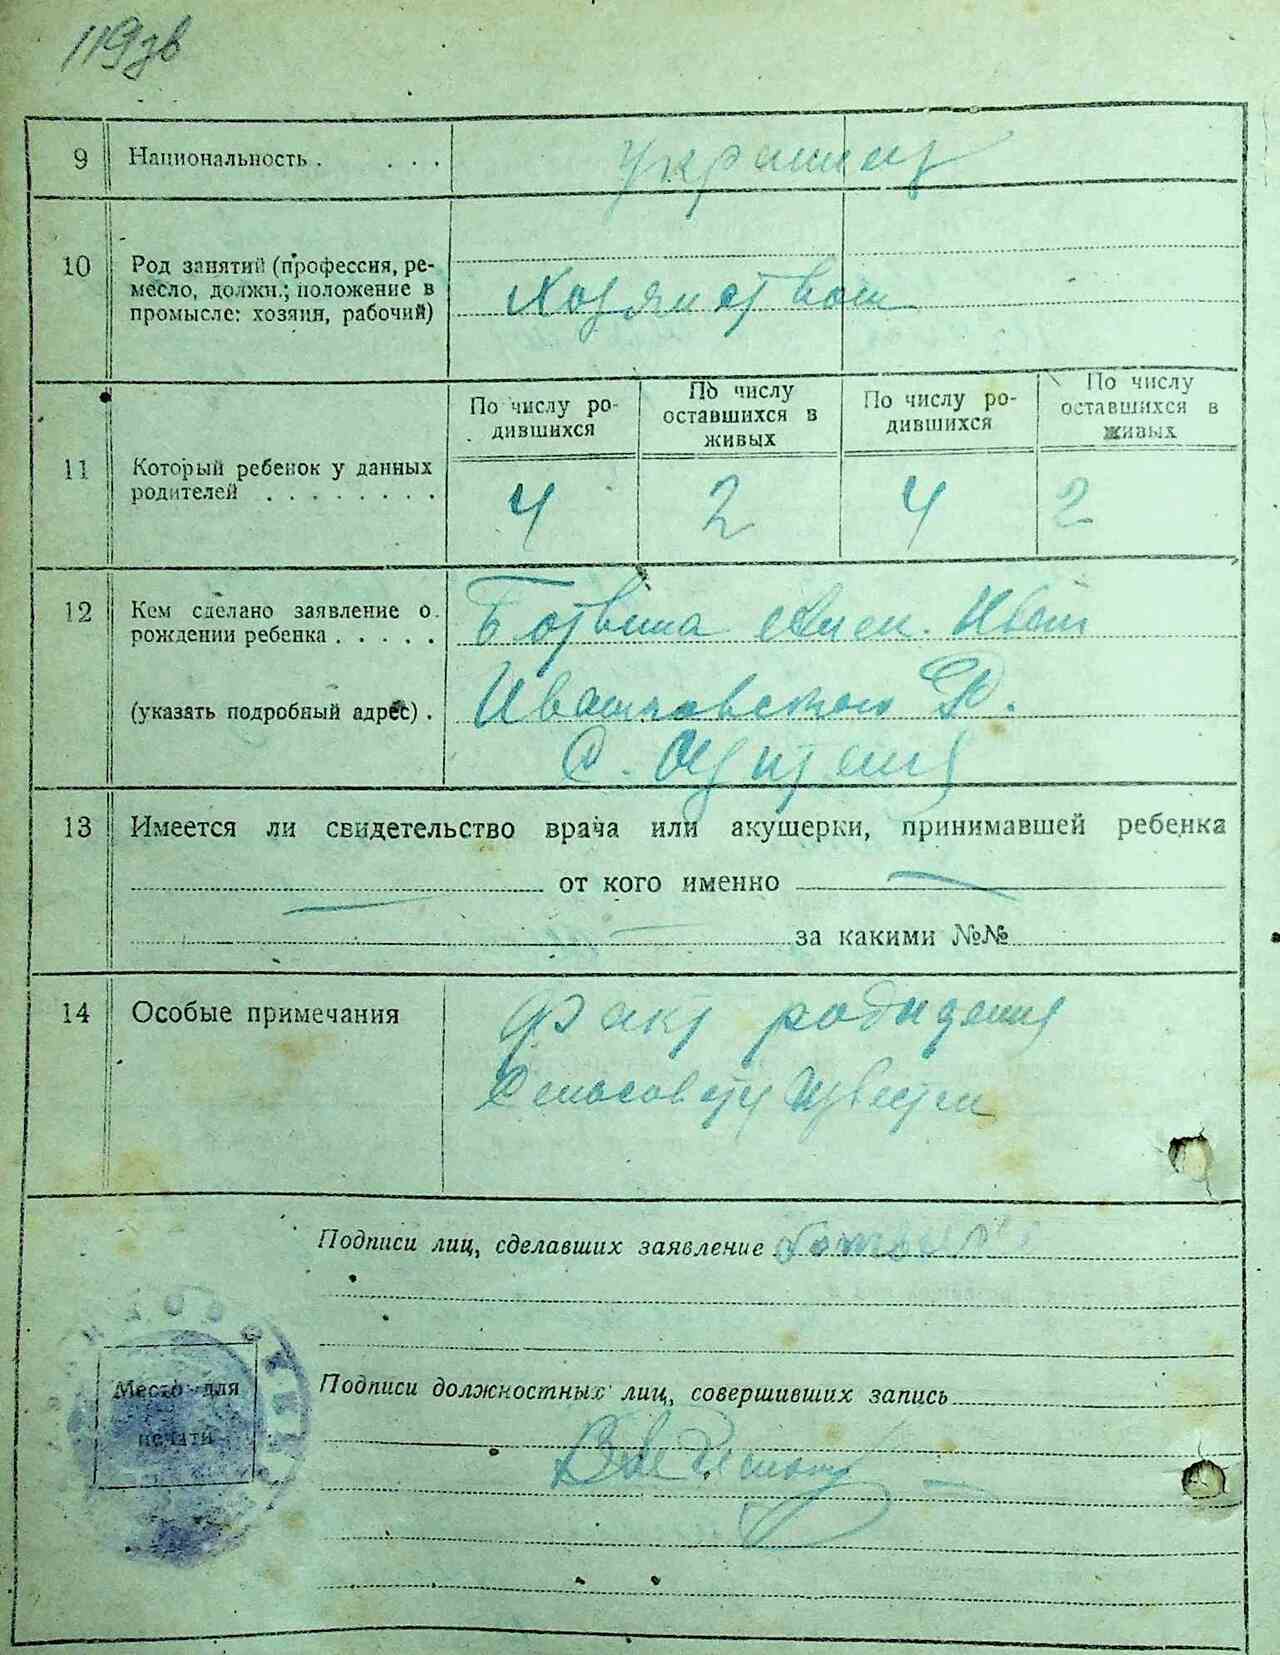 119зв
9 Национальность . . . .
Украинец
10 Род занятий (профессия, ре-
месло, должн.; положение в
промысле: хозяин, рабочий)
Хозяйством
11 Который ребенок у данных
родителей . . . . . . . .
По числу ро-
дившихся
По числу
оставшихся в
живых
По числу ро-
дившихся
По числу
оставшихся в
живых
4 2 4 2
12 Кем сделано заявление о
рождении ребенка . . . . .
(указать подробный адрес) .
Ботвина
Ивашковского Р.
С.
13 Имеется ли свидетельство врача или акушерки, принимавшей ребенка
от кого именно
за какими №№
14 Особые примечания
Факт рождения
Сельсовету известен
Подписи лиц, сделавших заявление
Место для
печати
Подписи должностных лиц, совершивших запись